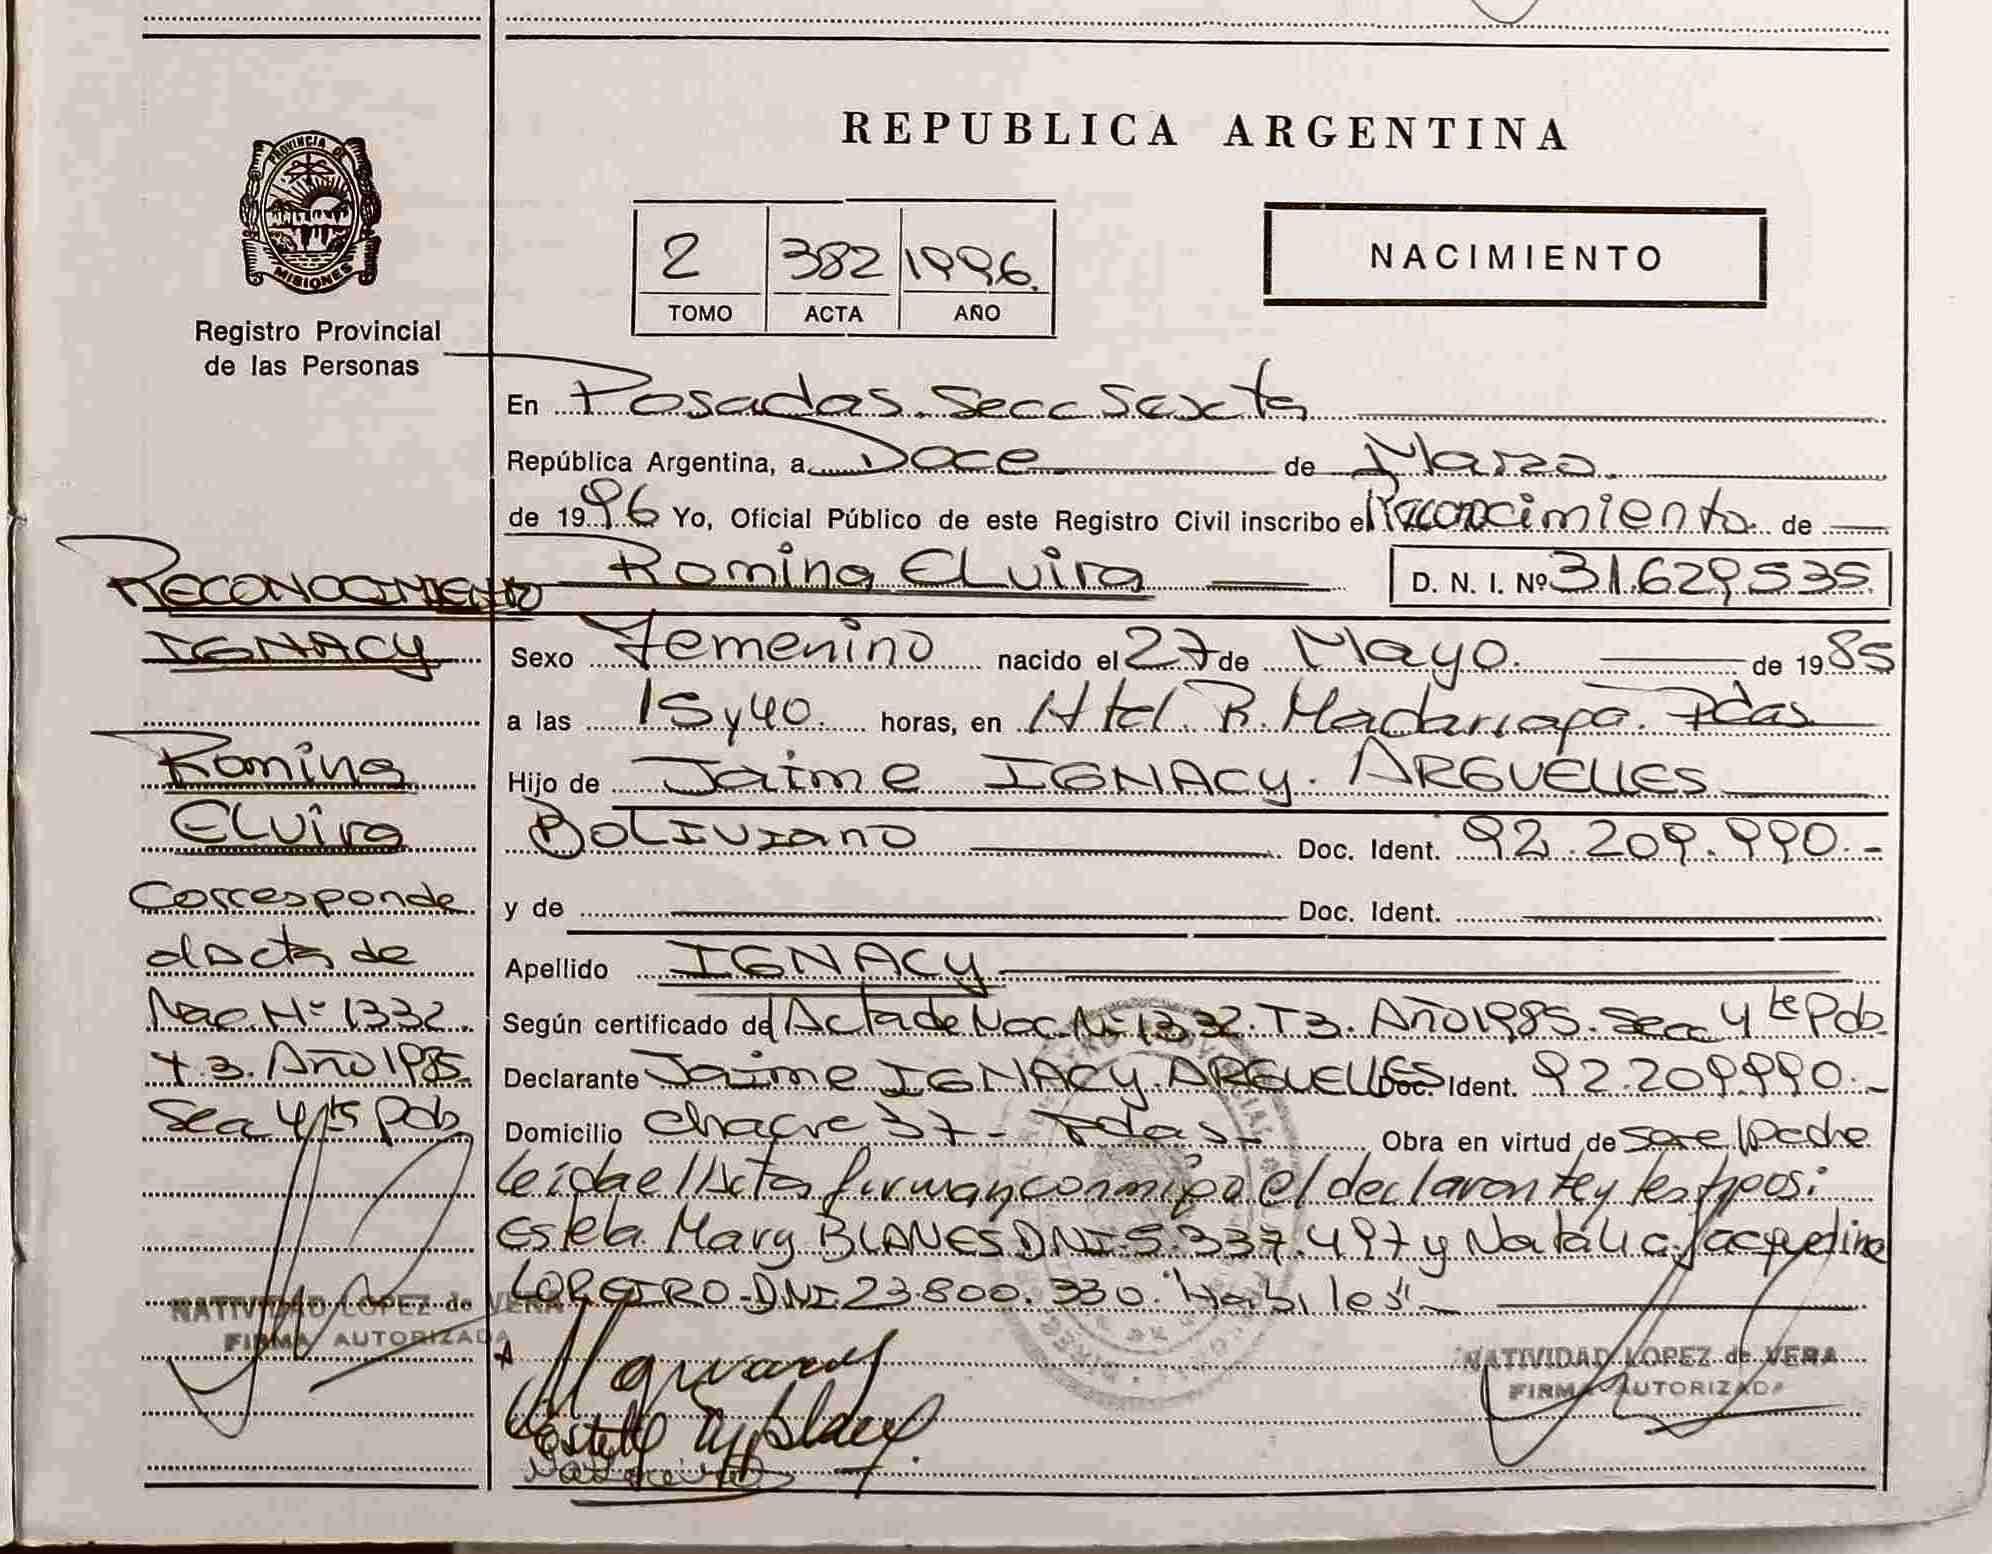 PROVINCIA DE
MISIONES
Registro Provincial
de las Personas
RECONOCIMIENTO
IGNACY
Romina
ELvira
Corresponde
al Acta de
Nac Nº 1332
T 3. Año 1985
Secc 4ta Pdas
NATIVIDAD LOPEZ de VERA
FIRMA AUTORIZADA
REPUBLICA ARGENTINA
2 382 1996.
TOMO ACTA AÑO
NACIMIENTO
En Posadas. Secc Sexta
República Argentina, a Doce de Marzo.
de 1996 Yo, Oficial Público de este Registro Civil inscribo el Reconocimiento de
Romina ELvira D. N. I. Nº 31.629.535.
Sexo Femenino nacido el 27 de Mayo. de 1985
a las 15 y 40. horas, en Htal. R. Madariaga. Pdas
Hijo de Jaime IGNACY. ARGUELLES
BOLIVIANO Doc. Ident. 92.209.990.-
y de Doc. Ident.
Apellido IGNACY
Según certificado del Acta de Nac. Nº 1332. T3. Año 1985. Secc 4ta Pdas.
Declarante Jaime IGNACY. ARGUELLES Doc. Ident. 92.209.990.-
Domicilio chacra 37 - Pdas - Obra en virtud de ser el padre
leida el Acta firman conmigo el declarante y testigos:
Estela Mary BLANES DNI. 5.337.497 y Natalia Jacqueline
LOREIRO - DNI. 23.800.330. "Habiles"
NATIVIDAD LOPEZ de VERA
FIRMA AUTORIZADA